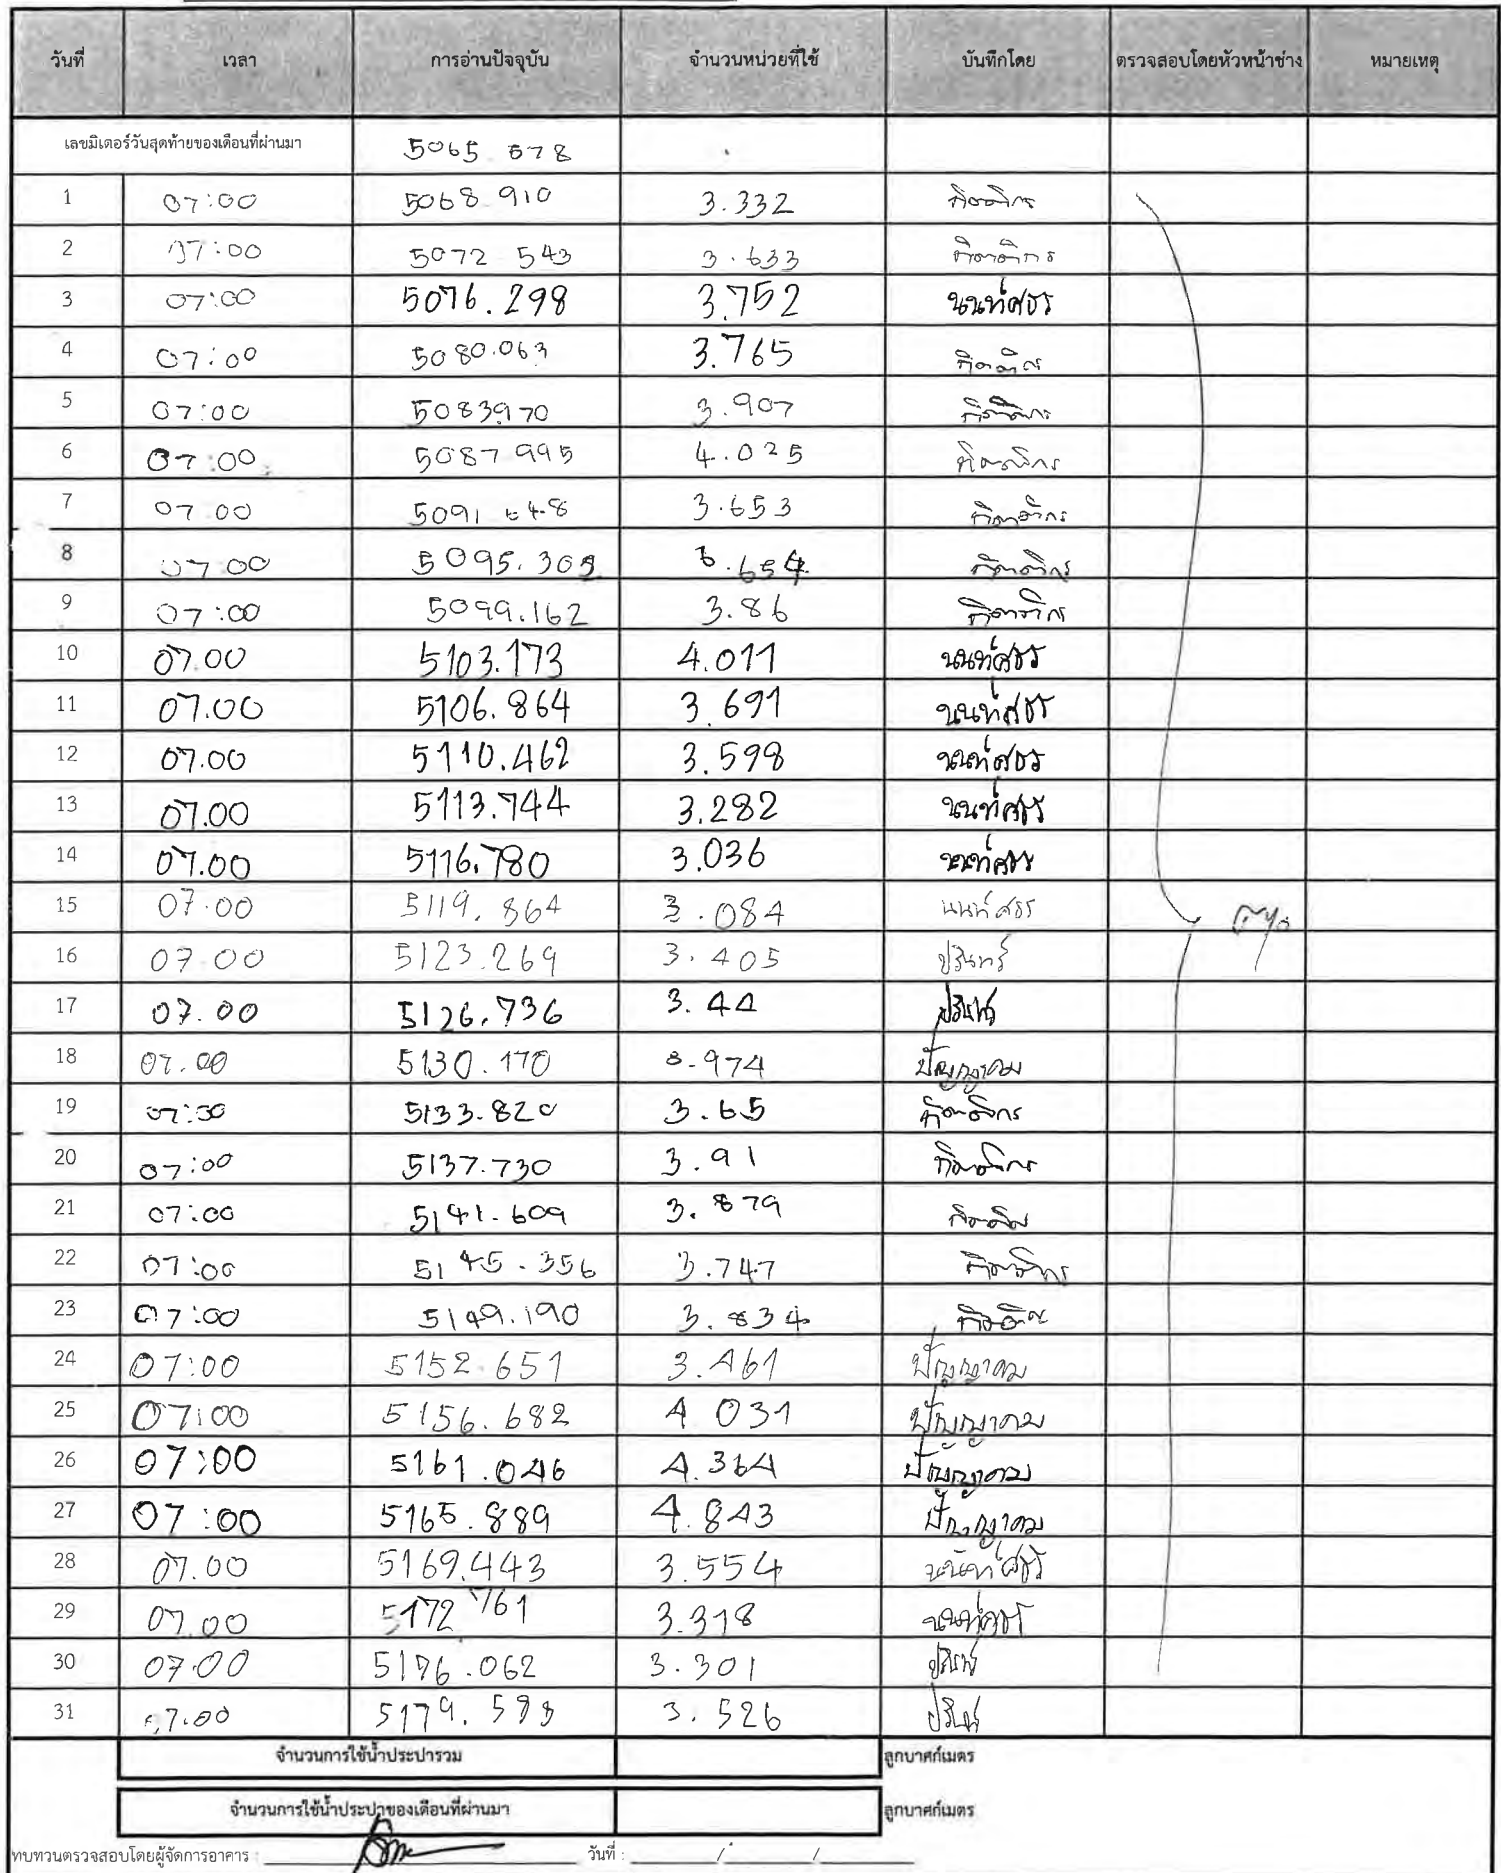 วันที่ เวลา การอ่านปัจจุบัน จำนวนหน่วยที่ใช้ บันทึกโดย ตรวจสอบโดยหัวหน้าช่าง หมายเหตุ
เลขมิเตอร์วันสุดท้ายของเดือนที่ผ่านมา 5065 578
1 07:00 5068 910 3.332
2 07:00 5072 543 3.633 กิตติกร
3 07:00 5076.298 3.752 นนท์ศธร
4 07:00 5080.063 3.765
5 07:00 5083970 3.907 กิตติกร
6 07:00 5087 995 4.025 กิตติกร
7 07 00 5091 648 3.653 กิตติกร
8 07 00 5095.302 3.654 กิตติกร
9 07:00 5099.162 3.86 กิตติกร
10 07.00 5103.173 4.011 นนท์ศธร
11 07.00 5106.864 3.691 นนท์ศธร
12 07.00 5110.462 3.598 นนท์ศธร
13 07.00 5113.744 3.282 นนท์ศธร
14 07.00 5116.780 3.036 นนท์ศธร
15 07.00 5119.864 3.084 นนท์ศธร
16 07.00 5123.269 3.405 ปรินทร์
17 07.00 5126.736 3.44
18 07.00 5130.170 3.974 ปัญญาคม
19 07:00 5133.820 3.65 กิตติกร
20 07:00 5137.730 3.91 กิตติกร
21 07:00 5141.609 3.879
22 07:00 5145.356 3.747 กิตติกร
23 07:00 5149.190 3.834
24 07:00 5152.651 3.461 ปัญญาคม
25 07:00 5156.682 4 031 ปัญญาคม
26 07:00 5161.046 4.364 ปัญญาคม
27 07:00 5165.889 4.843 ปัญญาคม
28 07.00 5169.443 3.554 นนท์ศธร
29 07.00 5172 761 3.318 นนท์ศธร
30 07.00 5176.062 3.301
31 07.00 5179.593 3.526
จำนวนการใช้น้ำประปารวม ลูกบาศก์เมตร
จำนวนการใช้น้ำประปาของเดือนที่ผ่านมา ลูกบาศก์เมตร
ทบทวนตรวจสอบโดยผู้จัดการอาคาร : วันที่ : / /